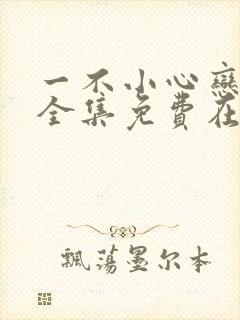 一不小心戀
全集免費在
飄蕩墨尔本